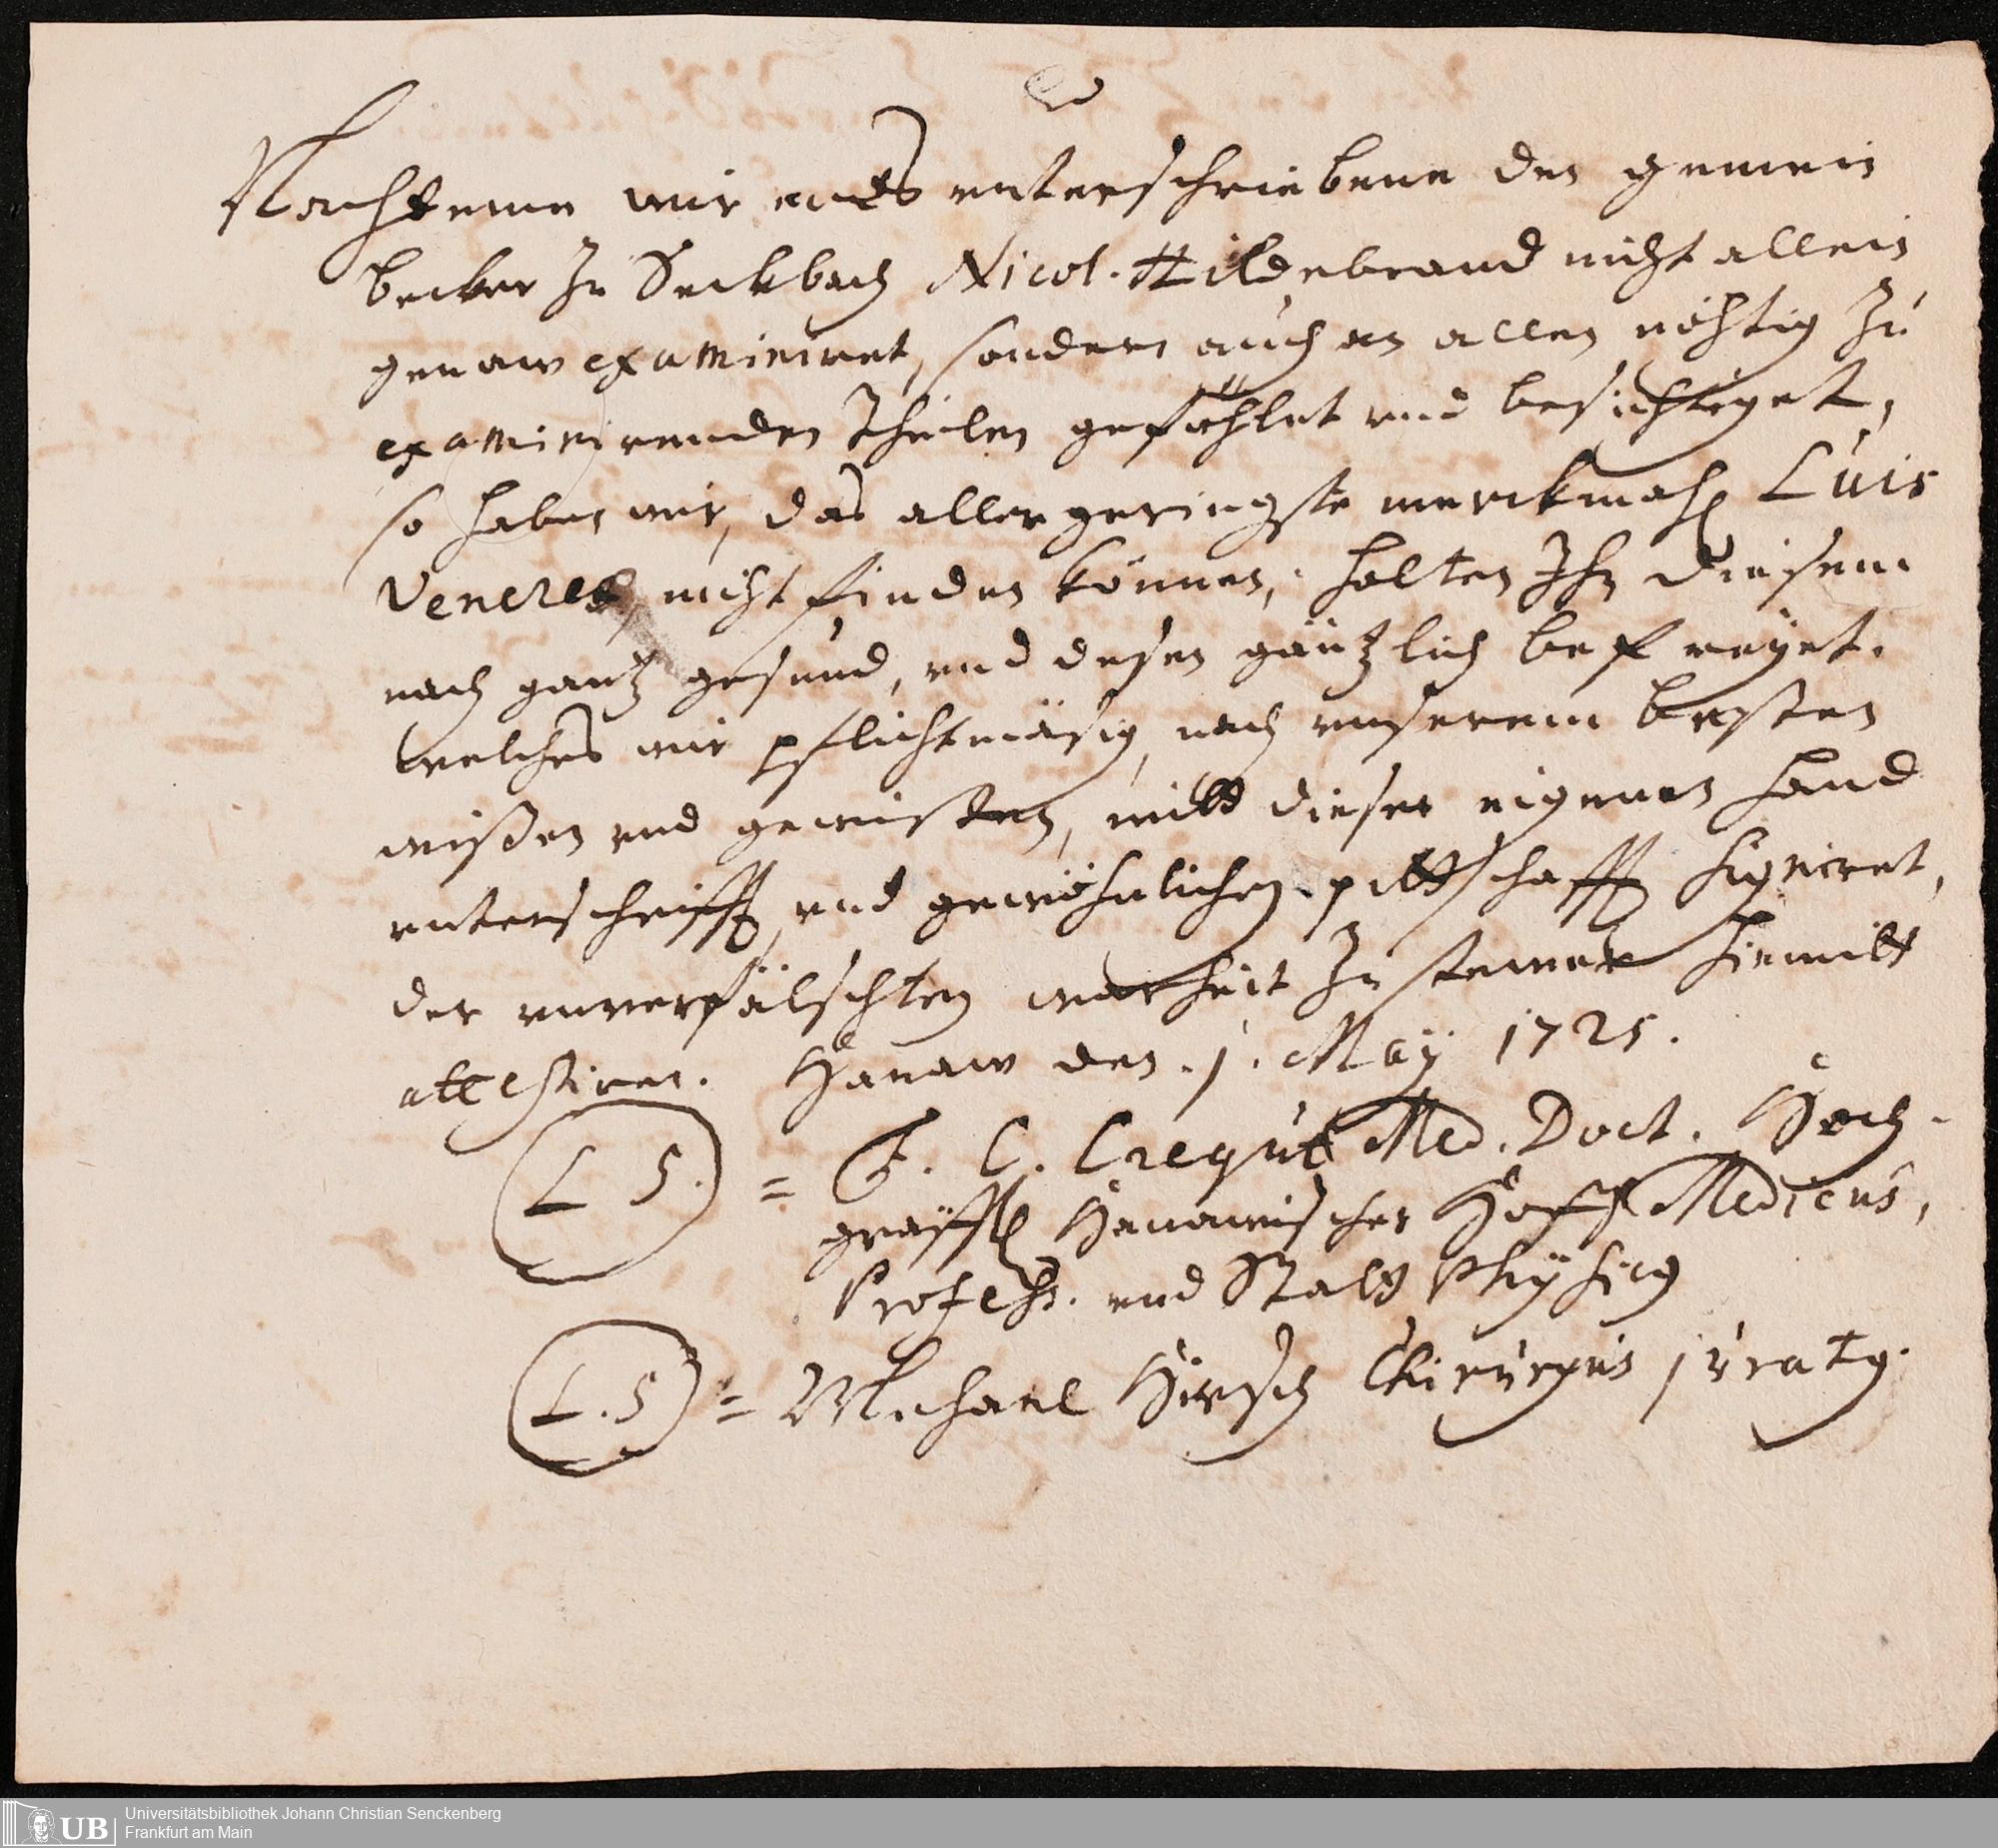 Nachdeme wir ends unterschriebene den gemein
becker zu Seckbach Nicol. Hildebrand nicht allein
genaw examiniret, sondern auch an allen nöhtig zu
examinirenden Theilen gefühlet und besichtiget,
so haben wir, das allergeringste merckmahl Luis
Venereæ, nicht finden können, halten Ihn diesem
nach gantz gesund, und deßen gäntzlich befreyet.
welches wir pflichtmäsig, nach unserem besten
wißen und gewißen, mitt dieser eigenen Hand
unterschrifft, und gewöhnlichen pittschafft signiret,
der unverfälschten warheit zu stewer hiemitt
attestiren. Hanaw den. 1. May 1725.
L S. = F. C. Crequt Med. Doct. Hoch-
gräffl Hanawischer Hoff Medicus,
Profess. und Statt Physicus
L. S = Michael Hirsch Chirurgus juratus.
Universitätsbibliothek Johann Christian Senckenberg
UB Frankfurt am Main